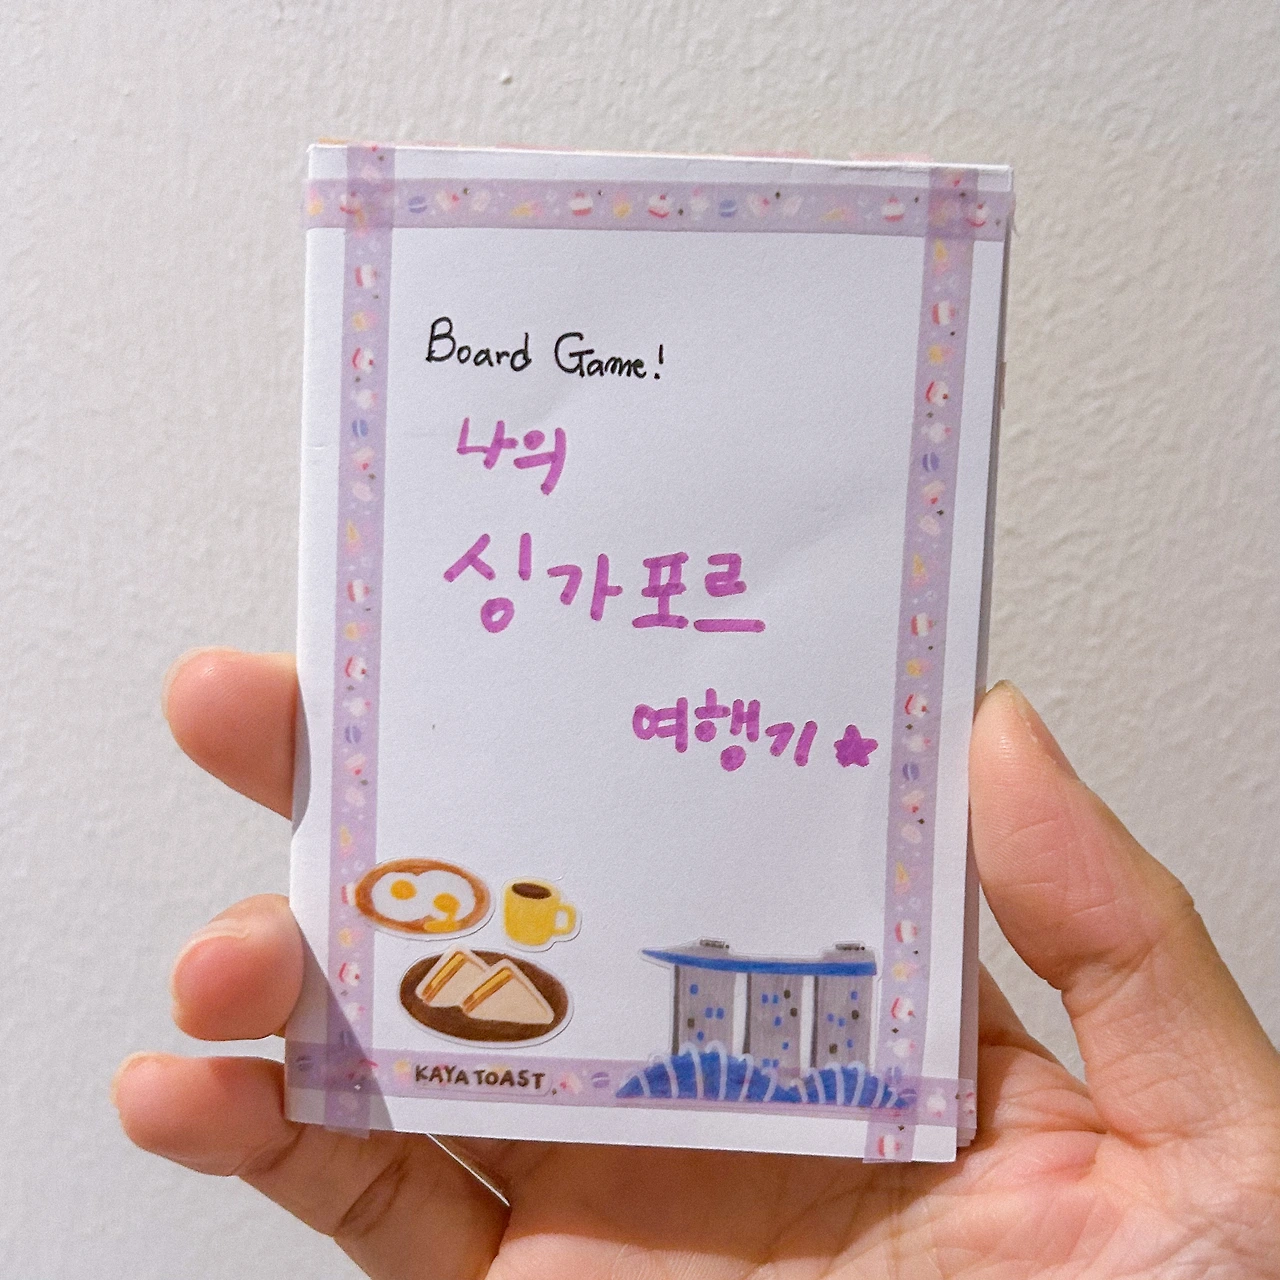 Board Game!
나의
싱가포르
여행기★
KAYA TOAST